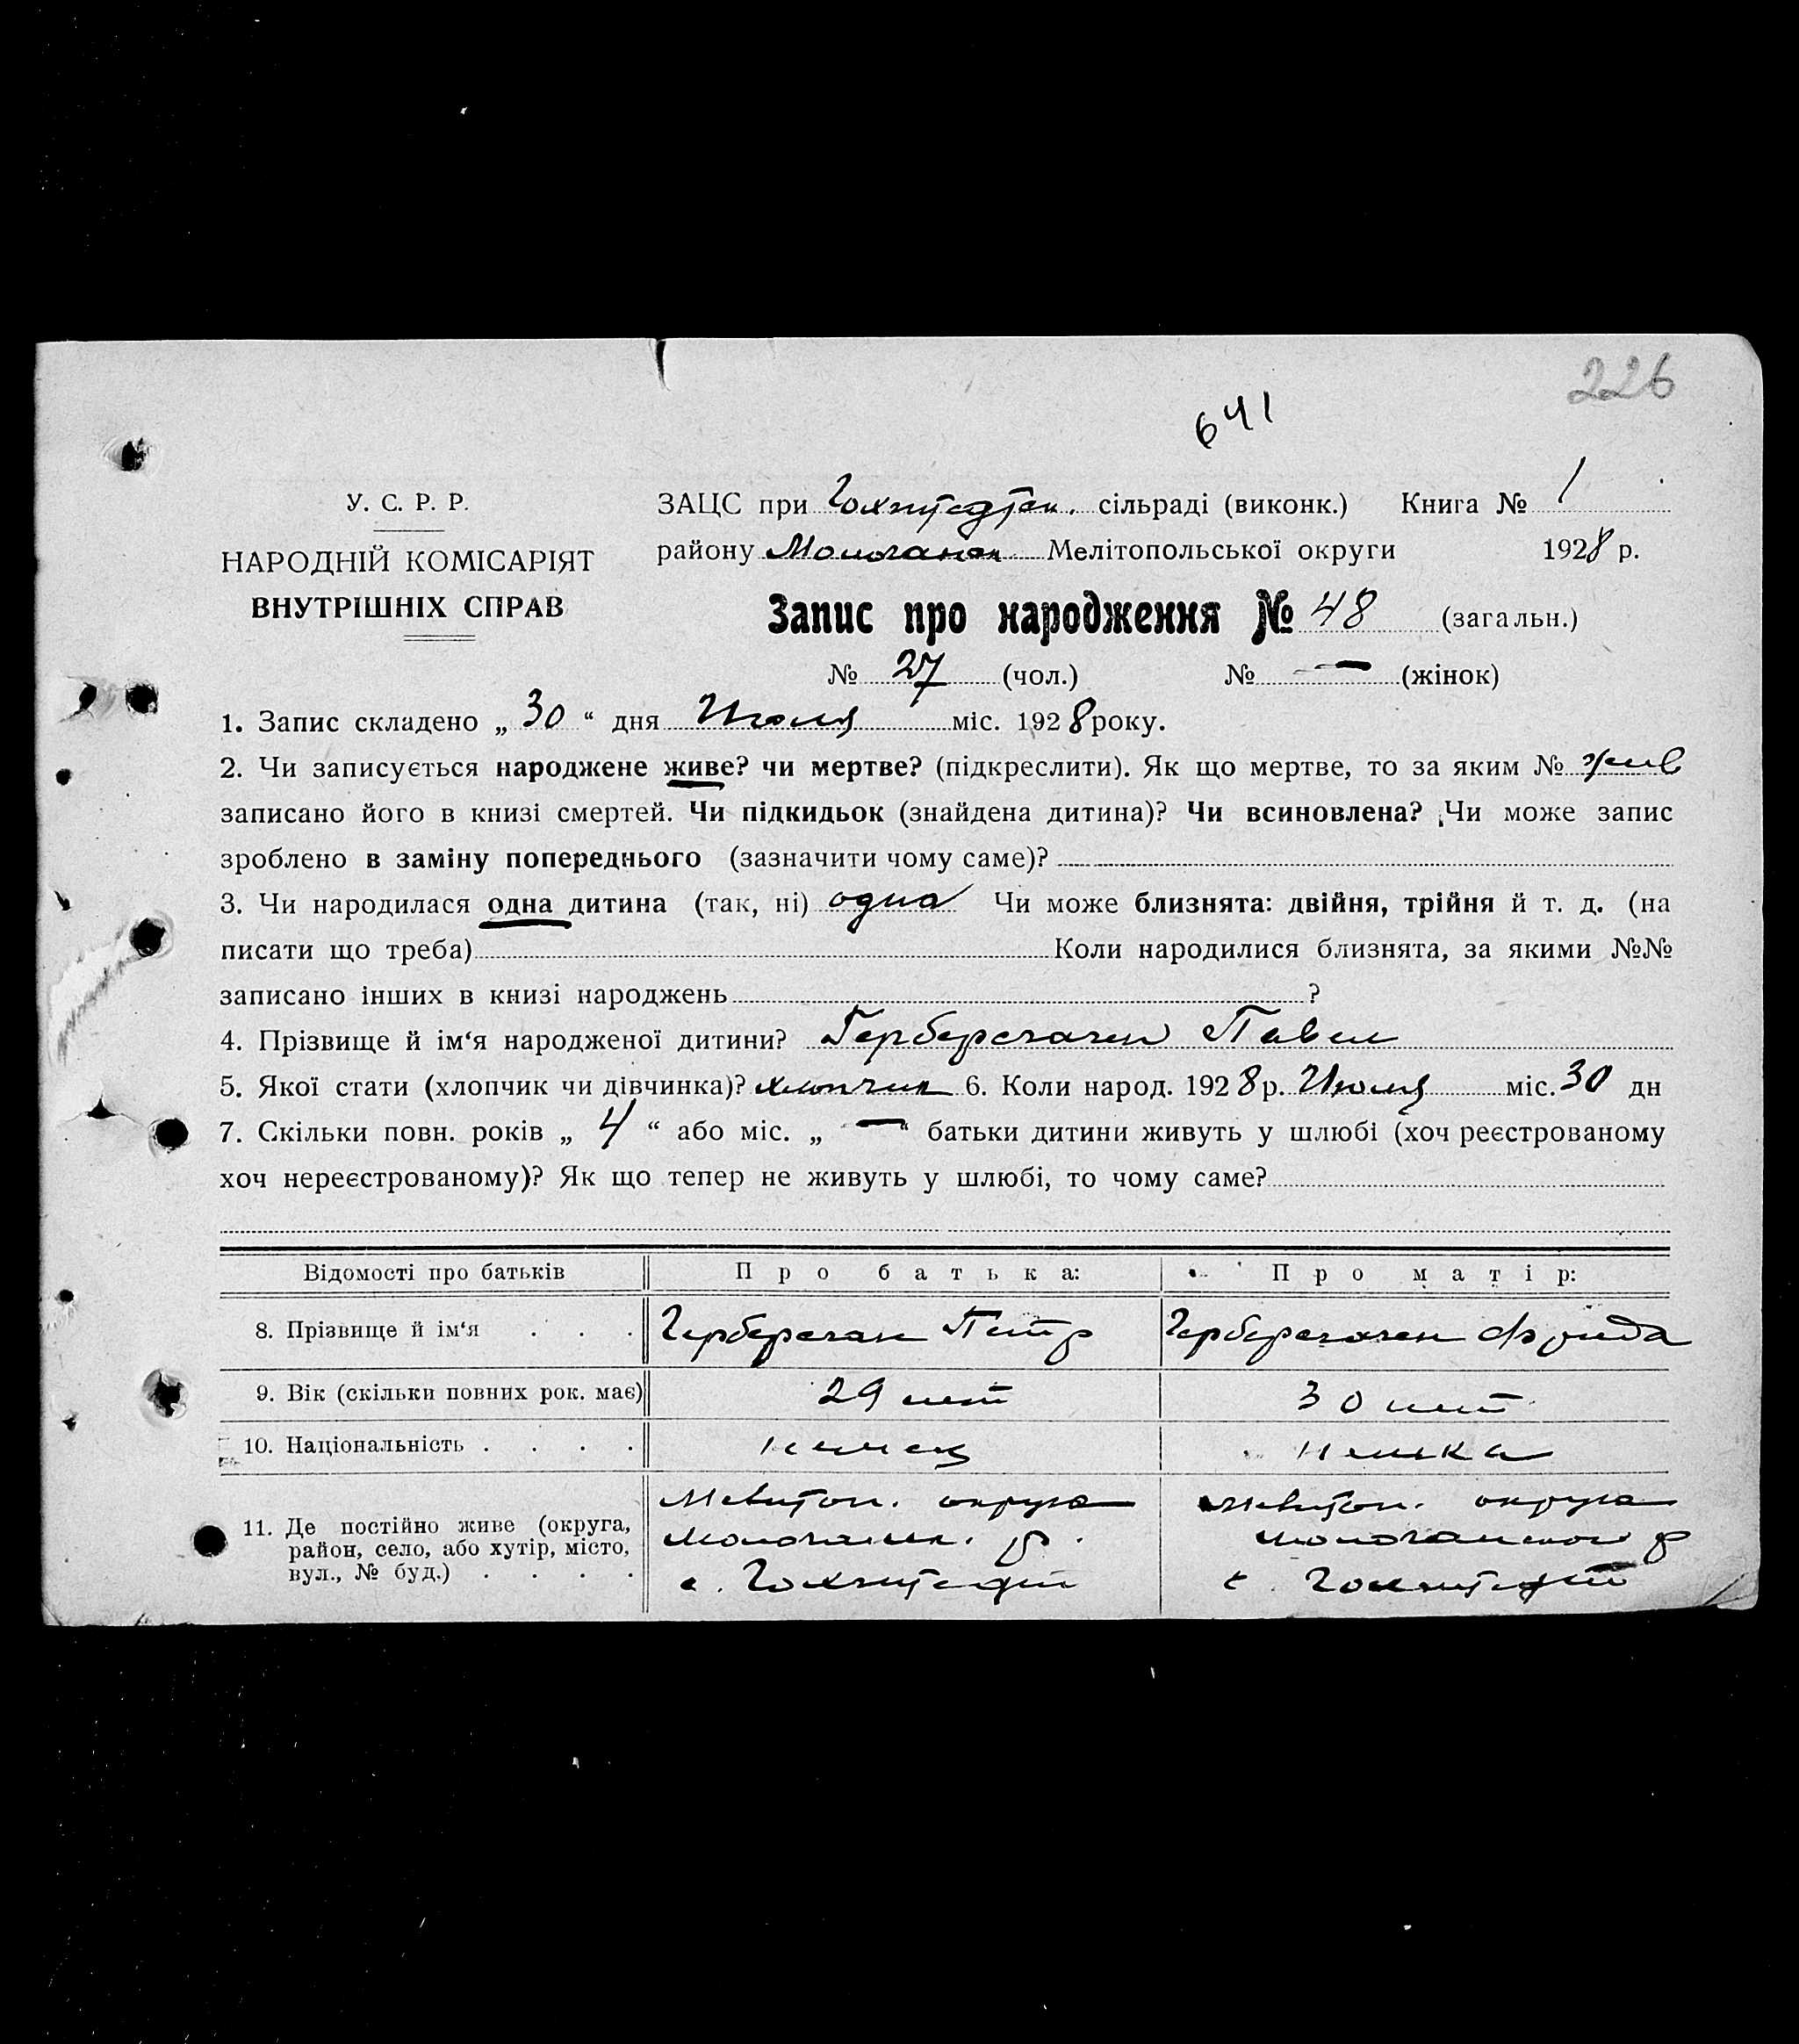 226
641
У. С. Р. Р.
НАРОДНІЙ КОМІСАРІЯТ
ВНУТРІШНІХ СПРАВ
ЗАЦС при Гохштедтск. сільраді (виконк.) Книга № 1
району Молочанск Мелітопольської округи 1928 р.
Запис про народження № 48 (загальн.)
№ 27 (чол.) № — (жінок)
1. Запис складено „ 30 “ дня Июля міс. 1928 року.
2. Чи записується народжене живе? чи мертве? (підкреслити). Як що мертве, то за яким № жив
записано його в книзі смертей. Чи підкидьок (знайдена дитина)? Чи всиновлена? Чи може запис
зроблено в заміну попереднього (зазначити чому саме)?
3. Чи народилася одна дитина (так, ні) одна Чи може близнята: двійня, трійня й т. д. (на
писати що треба) Коли народилися близнята, за якими №№
записано інших в книзі народжень ?
4. Прізвище й ім‘я народженої дитини? Павел
5. Якої стати (хлопчик чи дівчинка)? хлопчик 6. Коли народ. 1928 р. Июля міс. 30 дн
7. Скільки повн. років „ 4 “ або міс. „ — “ батьки дитини живуть у шлюбі (хоч реєстрованому
хоч нереєстрованому)? Як що тепер не живуть у шлюбі, то чому саме?
Відомості про батьків Про батька: Про матір:
8. Прізвище й ім‘я . . . Петр Фрида
9. Вік (скільки повних рок. має) 29 лет 30 лет
10. Національність . . . . немец немка
11. Де постійно живе (округа,
район, село, або хутір, місто,
вул., № буд.) . . . .
Мелитоп. округа
Молочанск. р.
с. Гохштедт
Мелитоп. округа
Молочанской р
с. Гохштедт